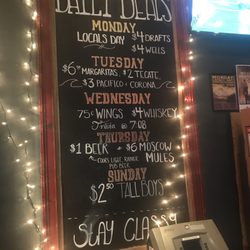 DAILY DEALS
MONDAY
LOCALS DAY $4 DRAFTS
$4 WELLS
TUESDAY
$6 MARGARITAS, $2 TECATE,
$3 PACIFICO + CORONA
WEDNESDAY
75¢ WINGS $4 WHISKEY
Trivia @ 7:08
THURSDAY
$1 BEER + $6 MOSCOW
COORS LIGHT, RANGE MULES
PUB BEER
SUNDAY
$2.50 TALL BOYS
STAY CLASSY